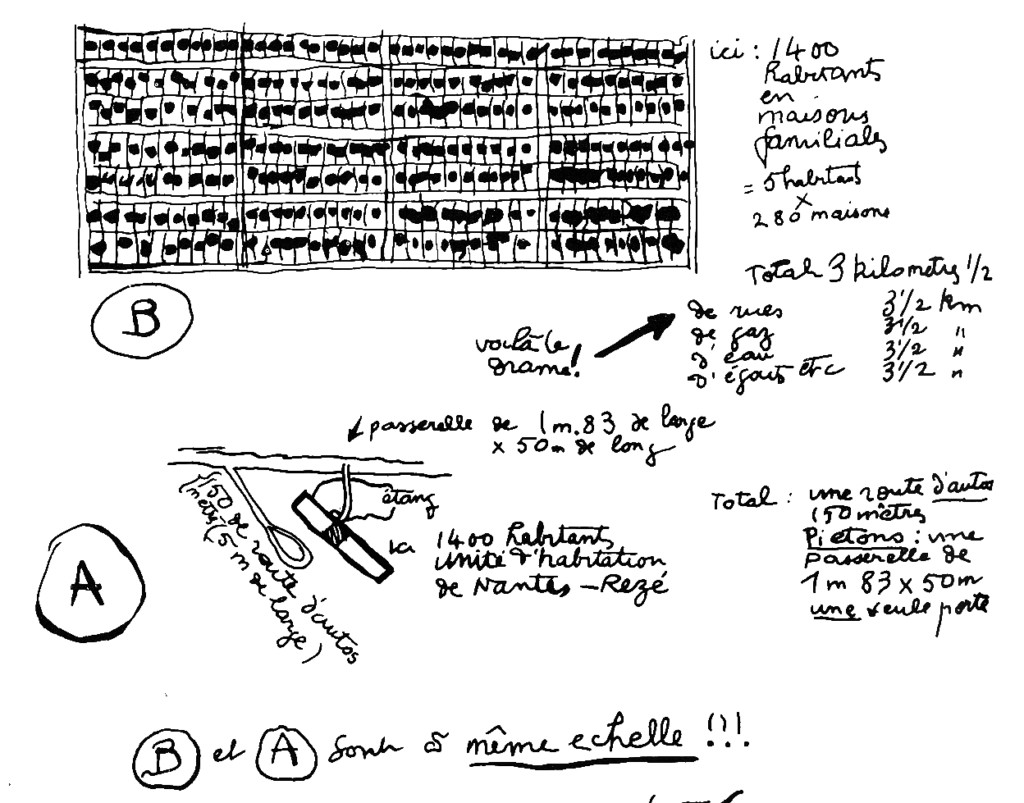 ici : 1400
habitants
en
maisons
familiales
= 5 habitants
x
280 maisons
Total 3 kilometres 1/2
de rues 3 1/2 km
de gaz 3 1/2 "
d'eau 3 1/2 "
d'égouts etc 3 1/2 "
voilà le
drame!
B
passerelle de 1 m. 83 de large
x 50 m de long
étang
150 de route d'autos
mètres (5 m de large)
ici
1400 habitants
unité d'habitation
de Nantes - Rezé
A
Total : une route d'autos
150 mètres
Pietons : une
passerelle de
1 m 83 x 50 m
une seule porte
B et A sont à même echelle !!!